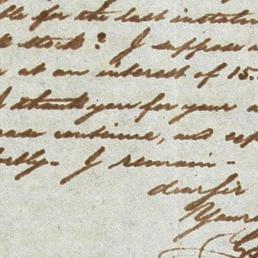 for the last
stock? I suppose
at an interest of 15.
I thank you for your
continue, and
I remain-
dear Sir
Yours